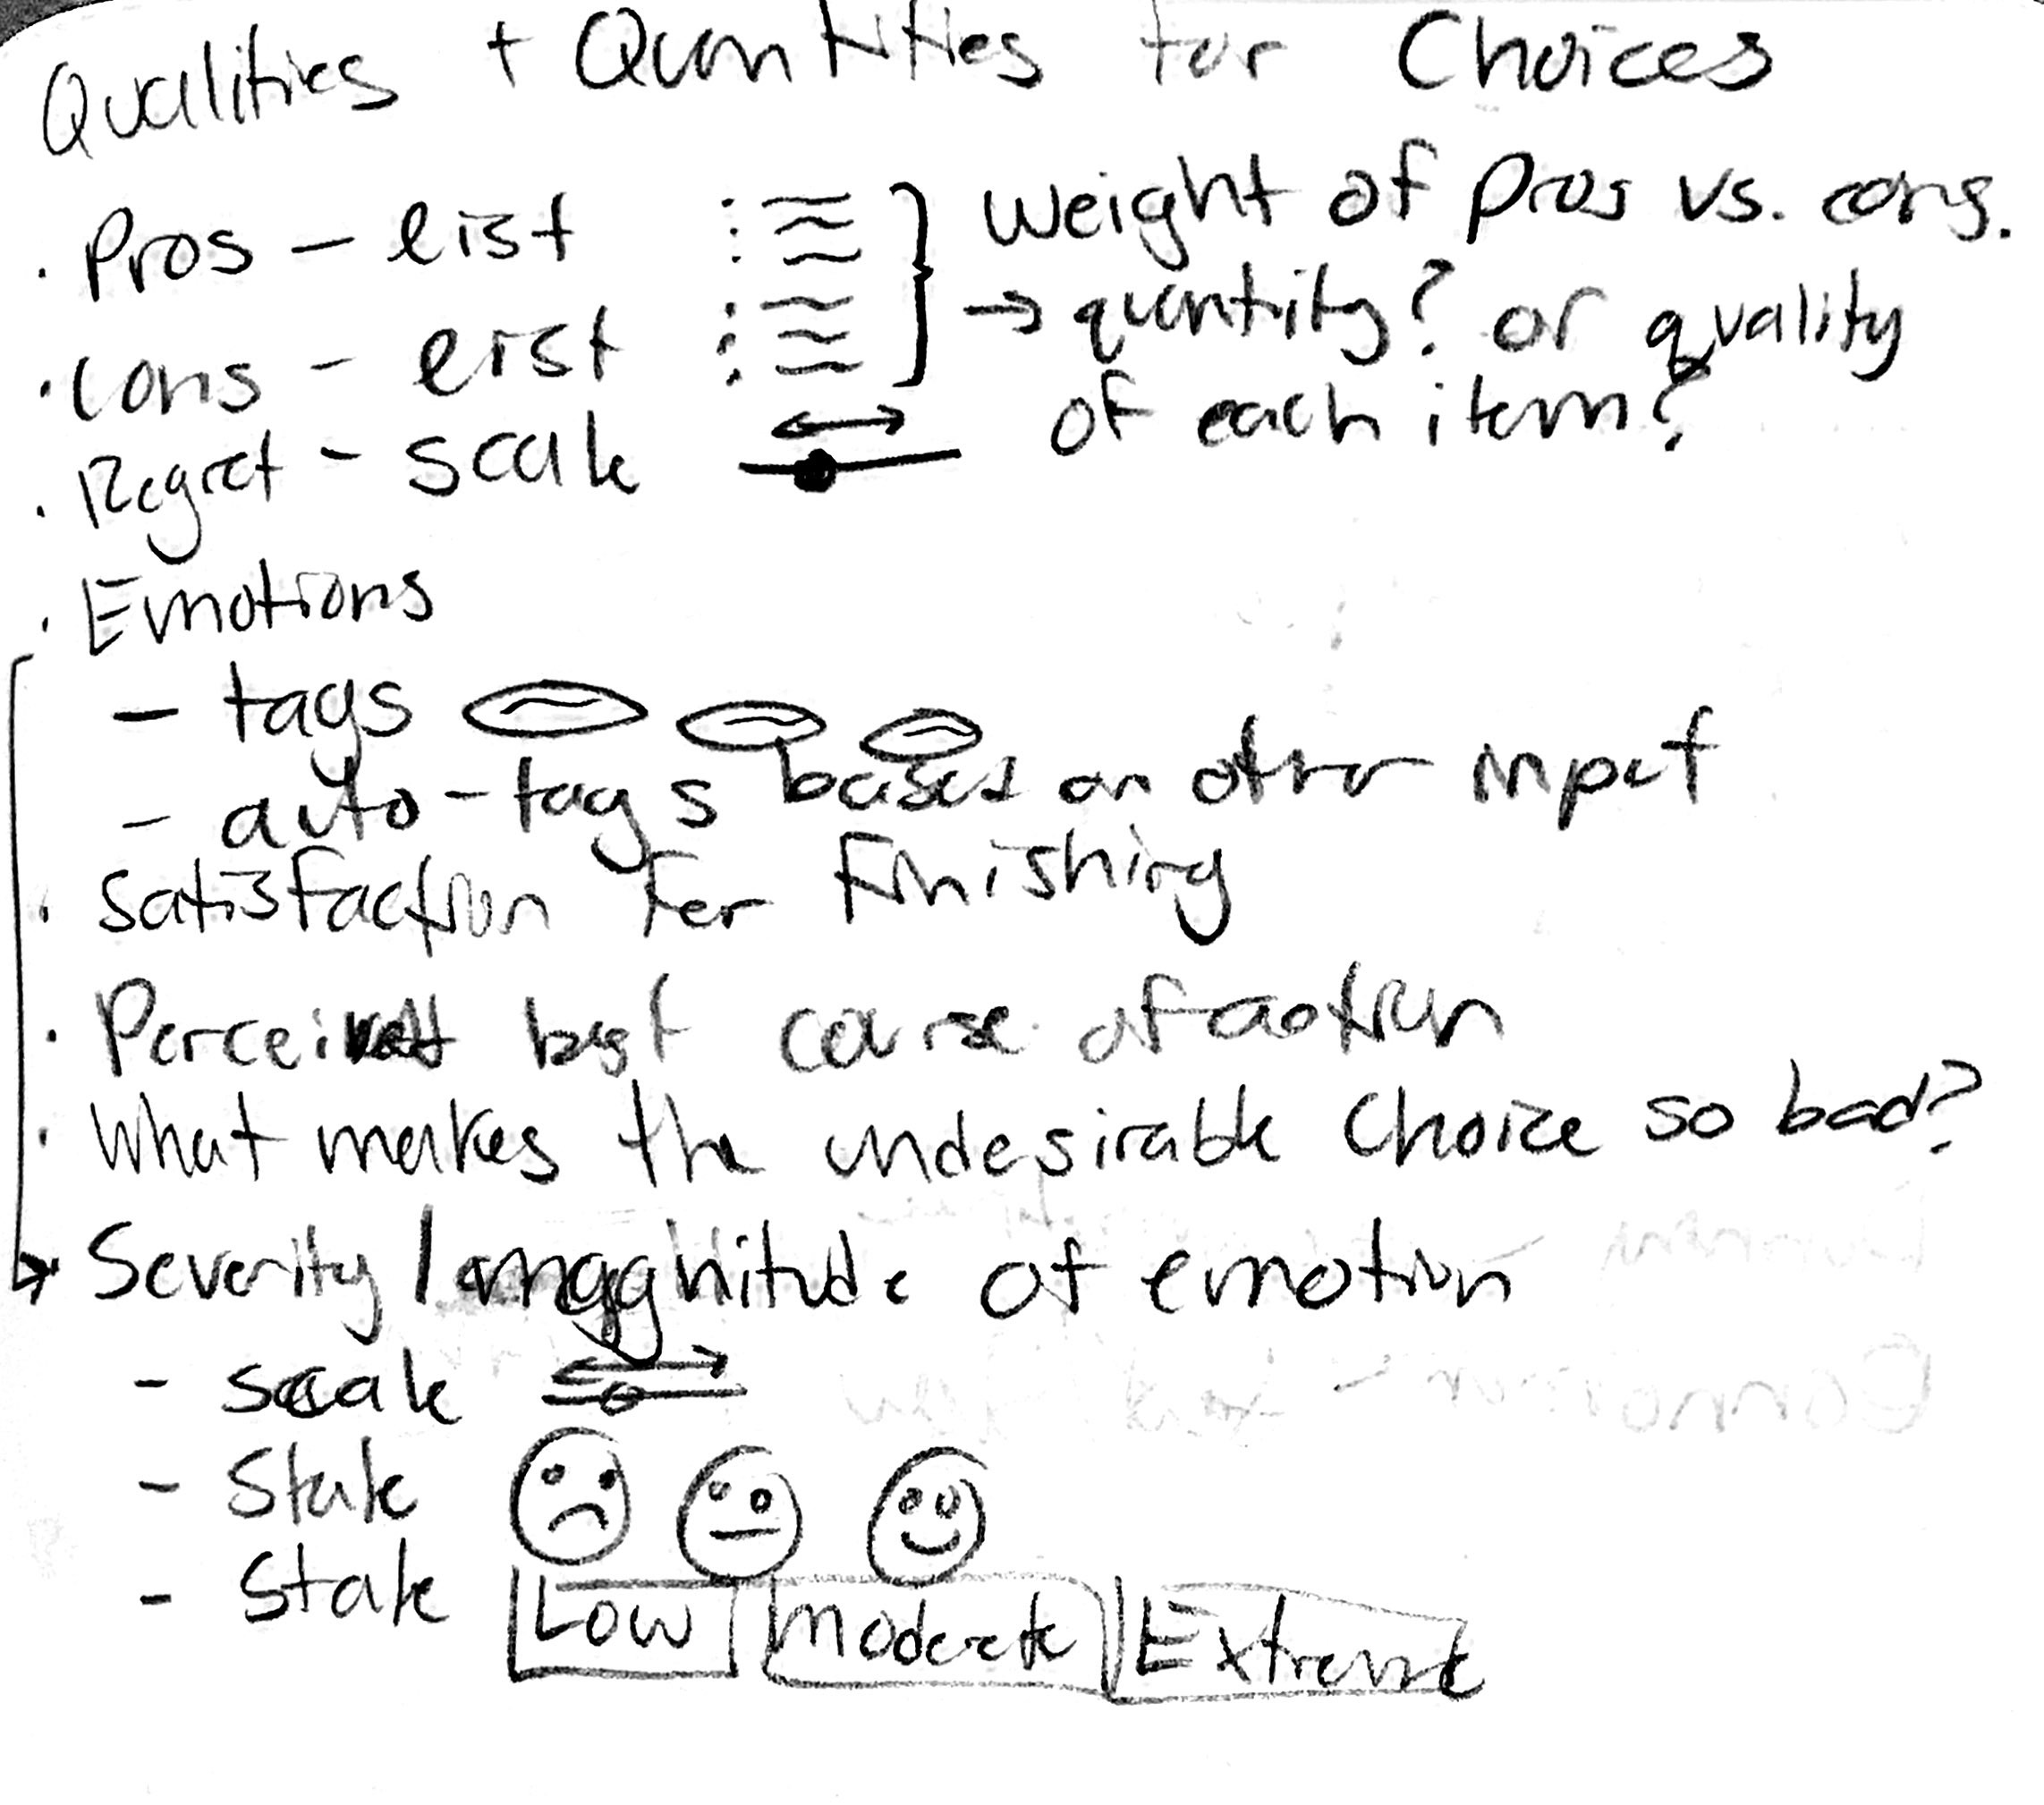 Qualities + Quantities for Choices
· Pros – list
weight of pros vs. cons.
· Cons – list
→ quantity? or quality
of each item?
· Regret – scale
· Emotions
– tags
– auto-tags based on other input
· Satisfaction for finishing
· Perceived best course of action
· What makes the undesirable choice so bad?
→ Severity / magnitude of emotion
- scale
- State
- State Low Moderate Extreme